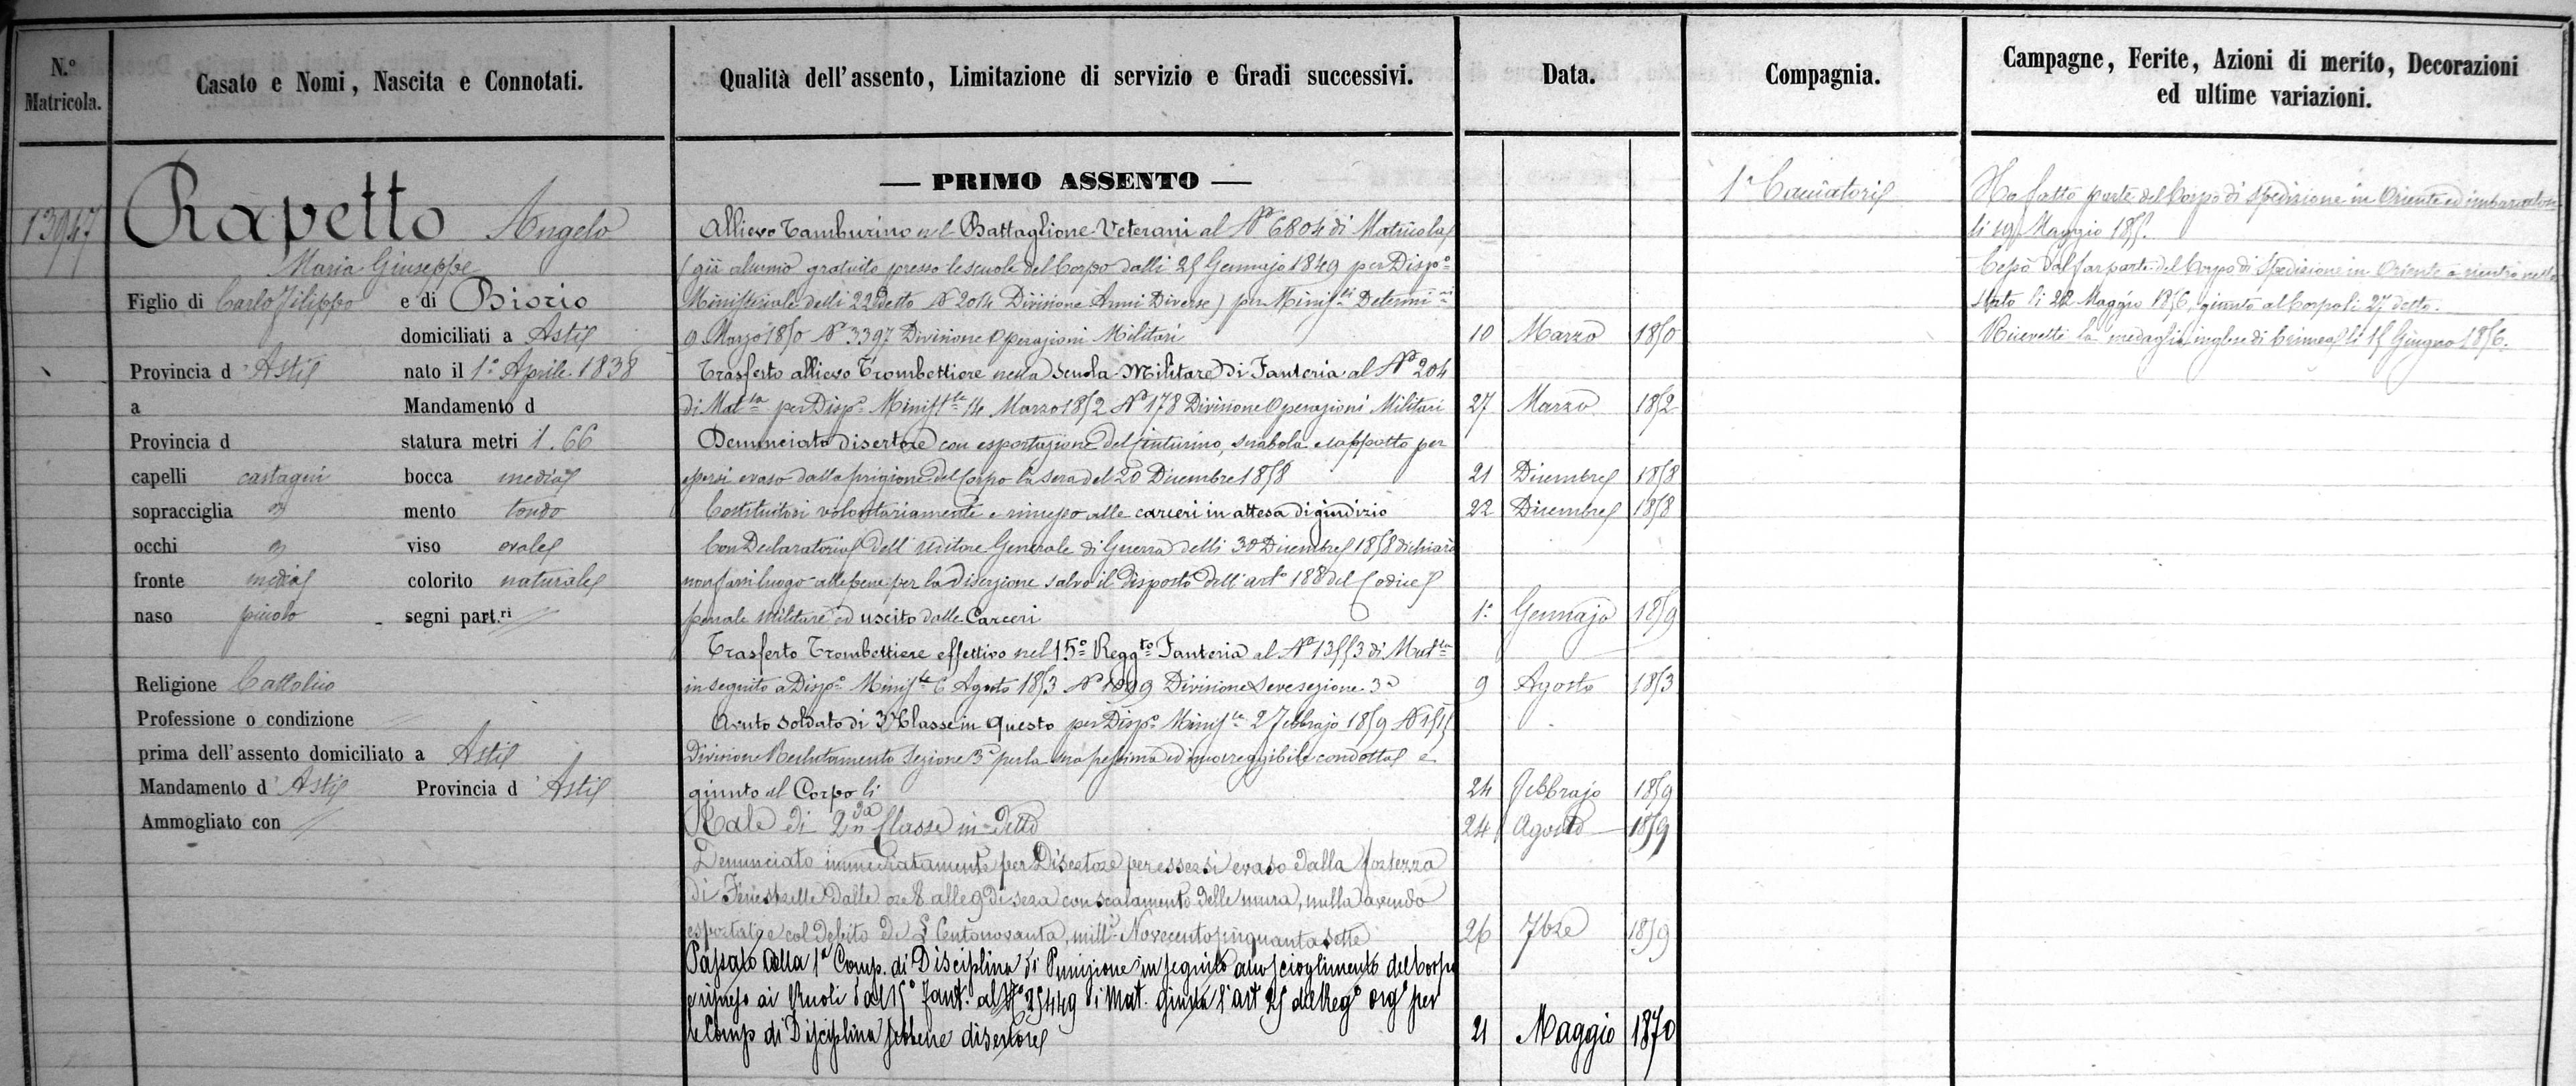 N.º Matricola.
Casato e Nomi, Nascita e Connotati.
Qualità dell'assento, Limitazione di servizio e Gradi successivi.
Data.
Compagnia.
Campagne, Ferite, Azioni di merito, Decorazioni
ed ultime variazioni.
13947
Rapetto Angelo
Maria Giuseppe
Figlio di Carlo Filippo e di Biorio
domiciliati a Asti
Provincia d' Asti nato il 1º Aprile 1838
a Mandamento d
Provincia d statura metri 1.66
capelli castagni bocca media
sopracciglia mento tondo
occhi viso ovale
fronte media colorito naturale
naso piccolo segni part.ri //
Religione Cattolico
Professione o condizione
prima dell'assento domiciliato a Asti
Mandamento d' Asti Provincia d' Asti
Ammogliato con //
— PRIMO ASSENTO —
Allievo Tamburino nel Battaglione Veterani al Nº 6804 di Matricola
(già alunno gratuito presso le scuole del Corpo dalli 25 Gennajo 1849 per Dispº
Ministeriale delli 22 detto Nº 2014 Divisione Armi Diverse) per Minisli Determini
9 Marzo 1850 Nº 3397 Divisione Operazioni Militari 10 Marzo 1850
Trasferto allievo Trombettiere nella Scuola Militare di Fanteria al Nº 204
di Matla per Dispe Ministle 14 Marzo 1852 Nº 178 Divisione Operazioni Militari 27 Marzo 1852
Denunciato disertore con esportazione del cinturino, sciabola e cappotto per
essersi evaso dalla prigione del Corpo la sera del 20 Dicembre 1858 21 Dicembre 1858
Costituitosi volontariamente e rimesso alle carceri in attesa di giudizio 22 Dicembre 1858
Con Declaratoria dell' Uditore Generale di Guerra delli 30 Dicembre 1858 dichiarò
non farsi luogo alle pene per la diserzione salvo il disposto dell' artº 188 del Codice
penale militare ed uscito dalle Carceri 1º Gennajo 1859
Trasferto Trombettiere effettivo nel 15º Reggto Fanteria al Nº 13553 di Matla
in seguito a Dispe Ministle 6 Agosto 1853 Nº 1099 Divisione Leve sezione 3ª 9 Agosto 1853
Avuto soldato di 3ª Classe in questo per Dispe Ministle 2 Febbrajo 1859 Nº
Divisione Reclutamento Sezione 3ª per la sua pessima ed incorreggibile condotta e
giunto al Corpo li 24 Febbrajo 1859
Tale di 2da Classe in detto 24 Agosto 1859
Denunciato immediatamente per Disertore per essersi evaso dalla fortezza
di Fenestrelle dalle ore 8 alle 9 di sera con scalamento delle mura, nulla avendo
esportato e col Debito di £ Centonovanta, milli Novecentocinquantasette 26 7bre 1859
Passato alla 1ª Comp. di Disciplina di Punizione in seguito allo scioglimento del Corpo
e rimesso ai Ruoli dal 15º Fantª al Nº 25449 di Mat. giusta l'art 25 del Regº orgº per
le Comp di Disciplina sebbene disertore 21 Maggio 1870
1ª Cacciatori
Ha fatto parte del Corpo di spedizione in Oriente ed imbarcatosi
li 19 Maggio 1855.
Cessò dal far parte del Corpo di Spedizione in Oriente e rientrò nello
Stato li 22 Maggio 1856, giunto al Corpo li 27 detto.
Ricevette la medaglia inglese di Crimea li 15 Giugno 1856.